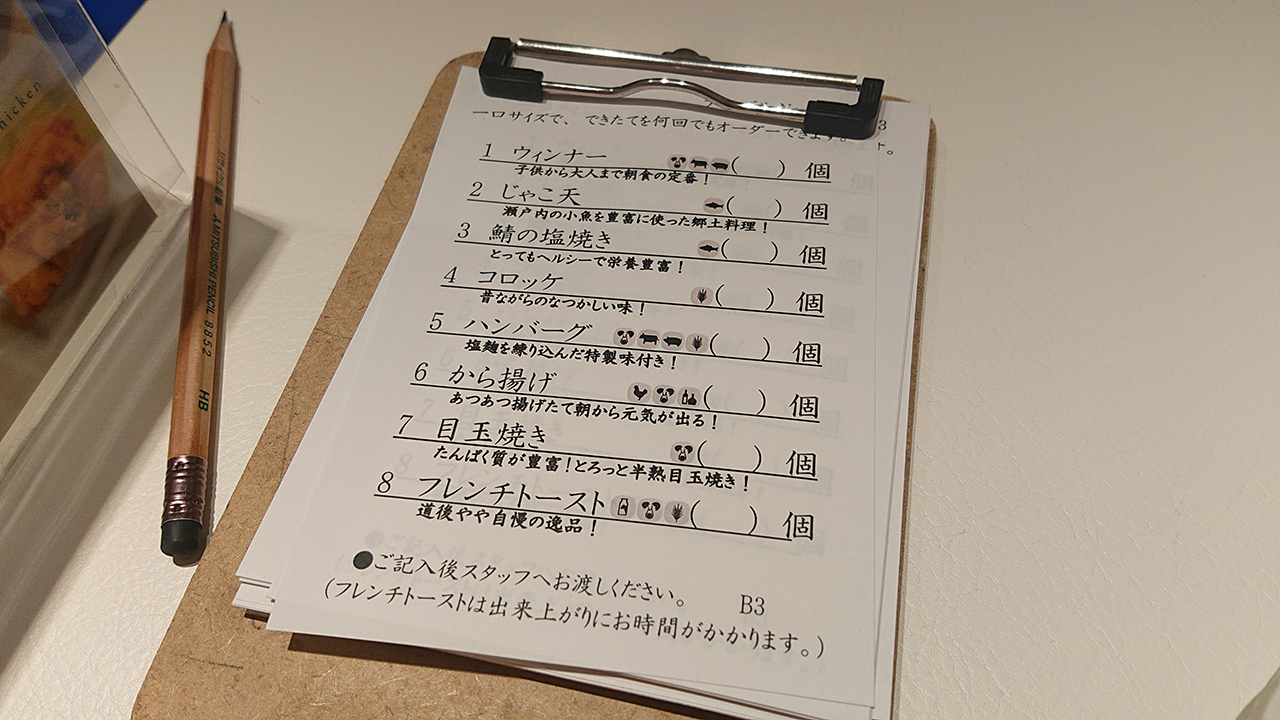 hicken
MITSUBISHI PENCIL 8852 HB
3
一口サイズで、できたてを何回でもオーダーできます。
1 ウィンナー ( ) 個
子供から大人まで朝食の定番!
2 じゃこ天 ( ) 個
瀬戸内の小魚を豊富に使った郷土料理!
3 鯖の塩焼き ( ) 個
とってもヘルシーで栄養豊富!
4 コロッケ ( ) 個
昔ながらのなつかしい味!
5 ハンバーグ ( ) 個
塩麹を練り込んだ特製味付き!
6 から揚げ ( ) 個
あつあつ揚げたて朝から元気が出る!
7 目玉焼き ( ) 個
たんぱく質が豊富!とろっと半熟目玉焼き!
8 フレンチトースト ( ) 個
道後やや自慢の逸品!
●ご記入後スタッフへお渡しください。 B3
(フレンチトーストは出来上がりにお時間がかかります。)